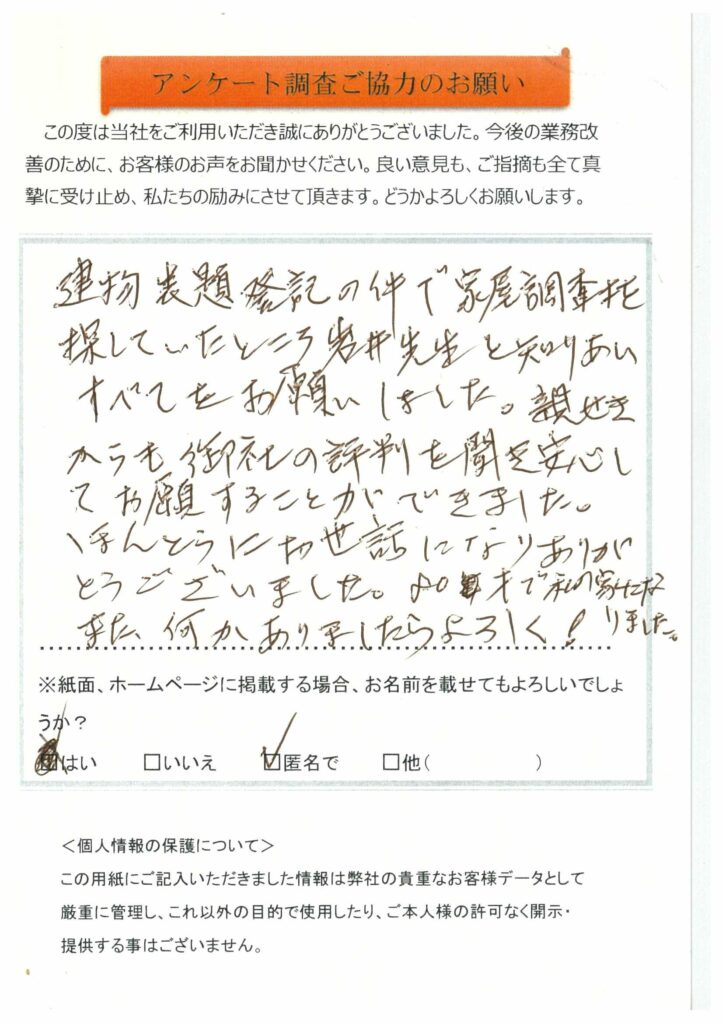 アンケート調査ご協力のお願い
この度は当社をご利用いただき誠にありがとうございました。今後の業務改
善のために、お客様のお声をお聞かせください。良い意見も、ご指摘も全て真
摯に受け止め、私たちの励みにさせて頂きます。どうかよろしくお願いします。
建物表題登記の件で家屋調査士を
探していたところ岩井先生と知りあい
すべてをお願いしました。親せき
からも御社の評判を聞き安心し
てお願することができました。
ほんとうにお世話になりありが
とうございました。才で私の家にな
りました。
また、何かありましたらよろしく!
※紙面、ホームページに掲載する場合、お名前を載せてもよろしいでしょ
うか?
はい □いいえ ☑匿名で □他( )
<個人情報の保護について>
この用紙にご記入いただきました情報は弊社の貴重なお客様データとして
厳重に管理し、これ以外の目的で使用したり、ご本人様の許可なく開示・
提供する事はございません。